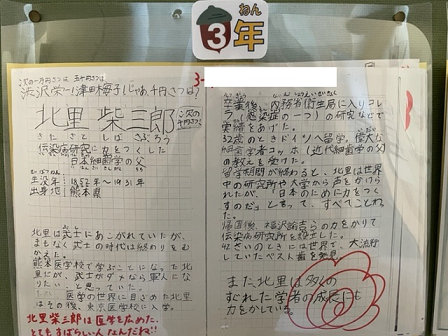 ねん
3年
次の一万円さつは 五千円さつは
渋沢栄一!津田梅子!じゃあ千円さつは?
北里 柴三郎
次の千円さつ
きた さと しば さぶろう
伝染病研究に力をつくした
日本細菌学の父
生没年 1852年～1931年
出身地 熊本県
北里は武士にあこがれていたが、
まもなく武士の時代は終わりをむ
かえた。
熊本医学校で学ぶことになった北
里だが、武士がダメなら軍人にな
りたい、と思っていた。
医学の世界に目ざめた北里
はその後、東京医学校に入学。
北里柴三郎は医学を広めた、
とてもすばらしい人なんだね!!
3-
卒業後、内務省衛生局に入りコレ
ラ(感染症の一つ)の研究などで
実績をあげた。
32歳のときドイツへ留学。偉大な
細菌学者コッホ(近代細菌学の父)
の教えを受けた。
留学期間が終わると、北里は世界
中の研究所や大学から声をかけら
れたが、「日本のために力をつく
すのだ」と言って、すべてことわっ
た。
帰国後、福沢諭吉らの力をかりて
伝染病研究所を設立した。
42さいのときには世界で、大流行
していたペスト菌を発見
また、北里は多くの
すぐれた学者の成長にも
力をかしている。